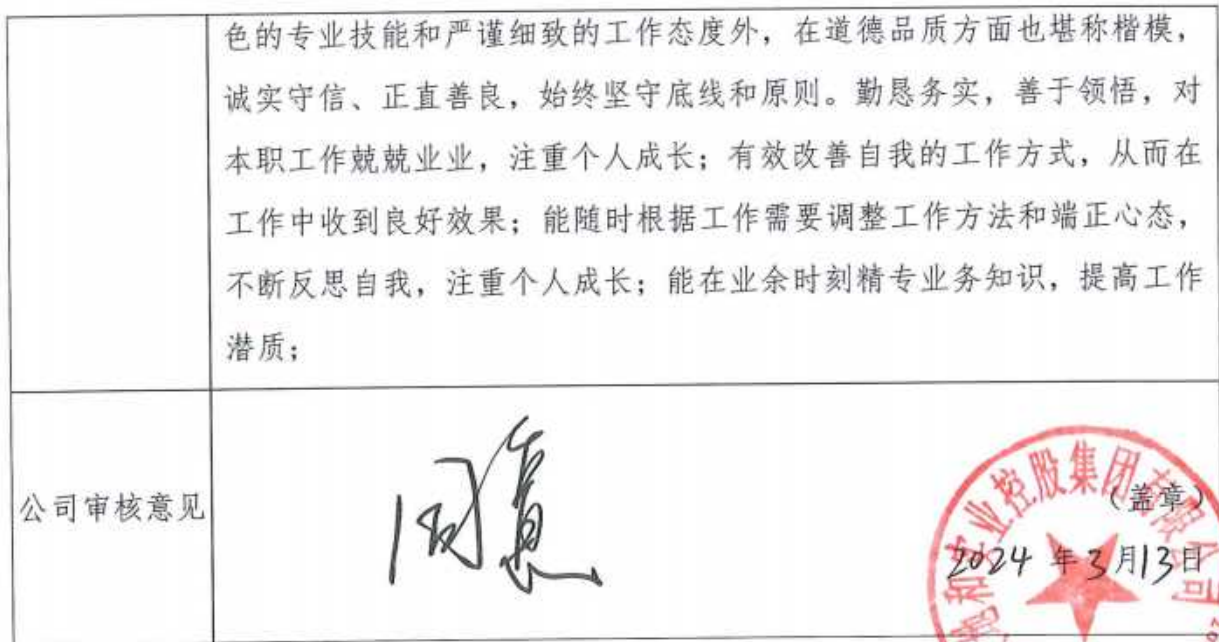 色的专业技能和严谨细致的工作态度外，在道德品质方面也堪称楷模，
诚实守信、正直善良，始终坚守底线和原则。勤恳务实，善于领悟，对
本职工作兢兢业业，注重个人成长；有效改善自我的工作方式，从而在
工作中收到良好效果；能随时根据工作需要调整工作方法和端正心态，
不断反思自我，注重个人成长；能在业余时刻精专业务知识，提高工作
潜质；
公司审核意见
同意
（盖章）
2024年3月13日
和实业控股集团有限公司